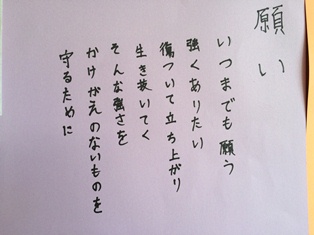 願い
いつまでも願う
強くありたい
傷ついて立ち上がり
生き抜いてく
そんな強さを
かけがえのないものを
守るために